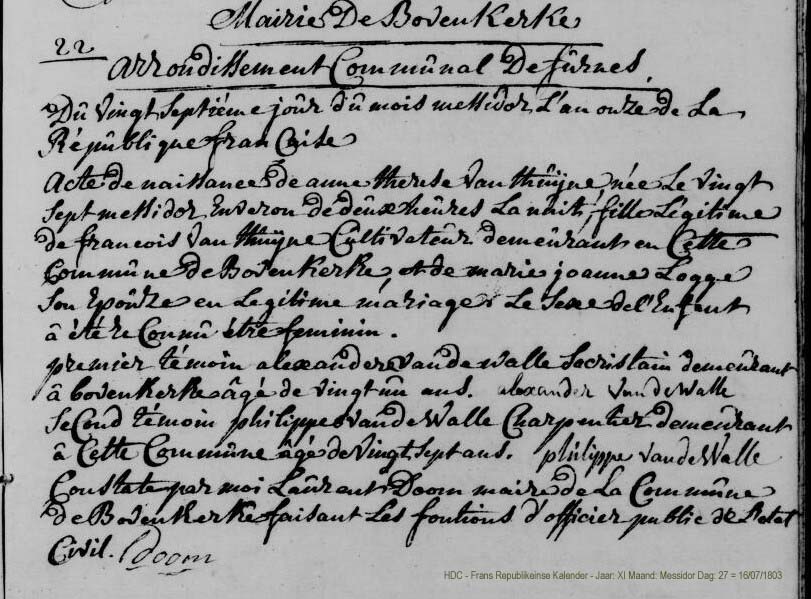 Mairie De Bovenkerke
22
Arrondissement Communal De furnes.
Du vingt Septiéme jour du mois messidor L'an onze de La
République francaise
Acte de naissance de anne therese Vanthuÿne, née Le Vingt
Sept messidor Enveron de deux heures La nuit, fille Légitime
de francois Vanthuÿne Cultivateur demeurant en Cette
Commune de Bovenkerke, et de marie joanne Logge
Son Epouze en Legitime mariage: Le Sexe de l'Enfant
à été reconnu être feminin.
premier témoin alexandere vandewalle Secristain demeurant
à bovenkerke âgé de vingt un ans. alexander VandeWalle
SeCond témoin philippe vandeWalle Charpentier demeurant
à Cette Commune âgé de Vingt Sept ans. philippe vandeWalle
Constaté par moi Laurant Doom maire de La Commune
de Bovenkerke faisant Les fontions d'officier public de L'etat
Civil. Doom
HDC - Frans Republikeinse Kalender - Jaar: XI Maand: Messidor Dag: 27 = 16/07/1803